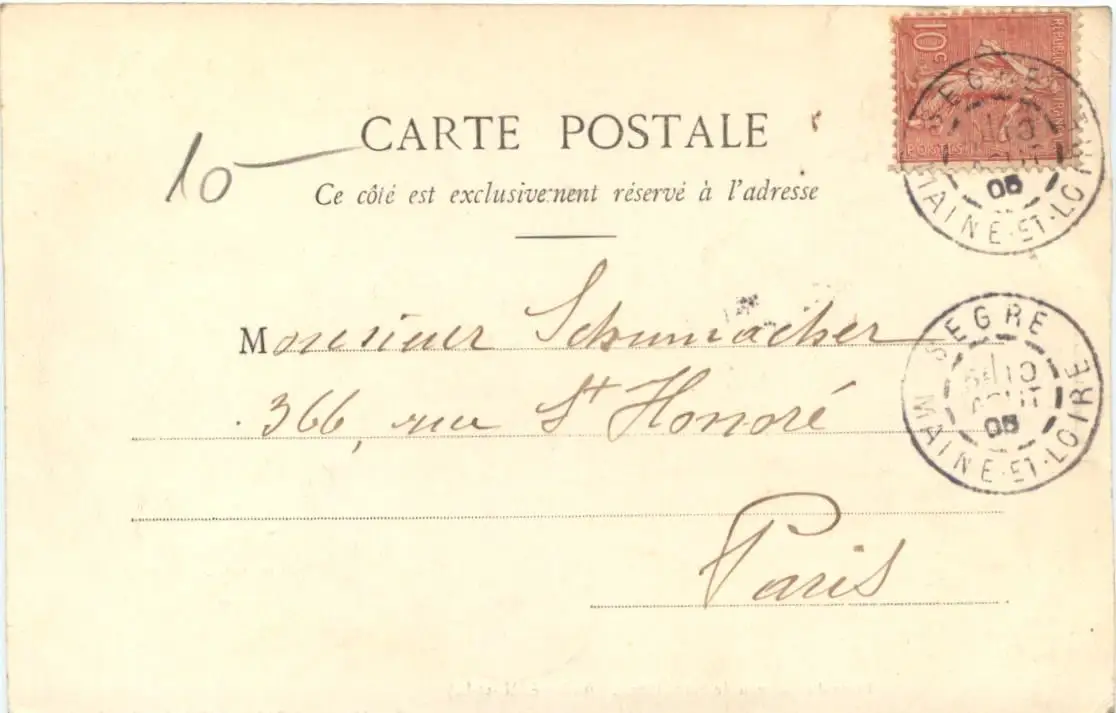 10
CARTE POSTALE
Ce côté est exclusivement réservé à l'adresse
Monsieur Schumacher
366, rue St Honoré
Paris
10
POSTES
SEGRE
05
MAINE-ET-LOIRE
SEGRE
10
AOUT
05
MAINE-ET-LOIRE